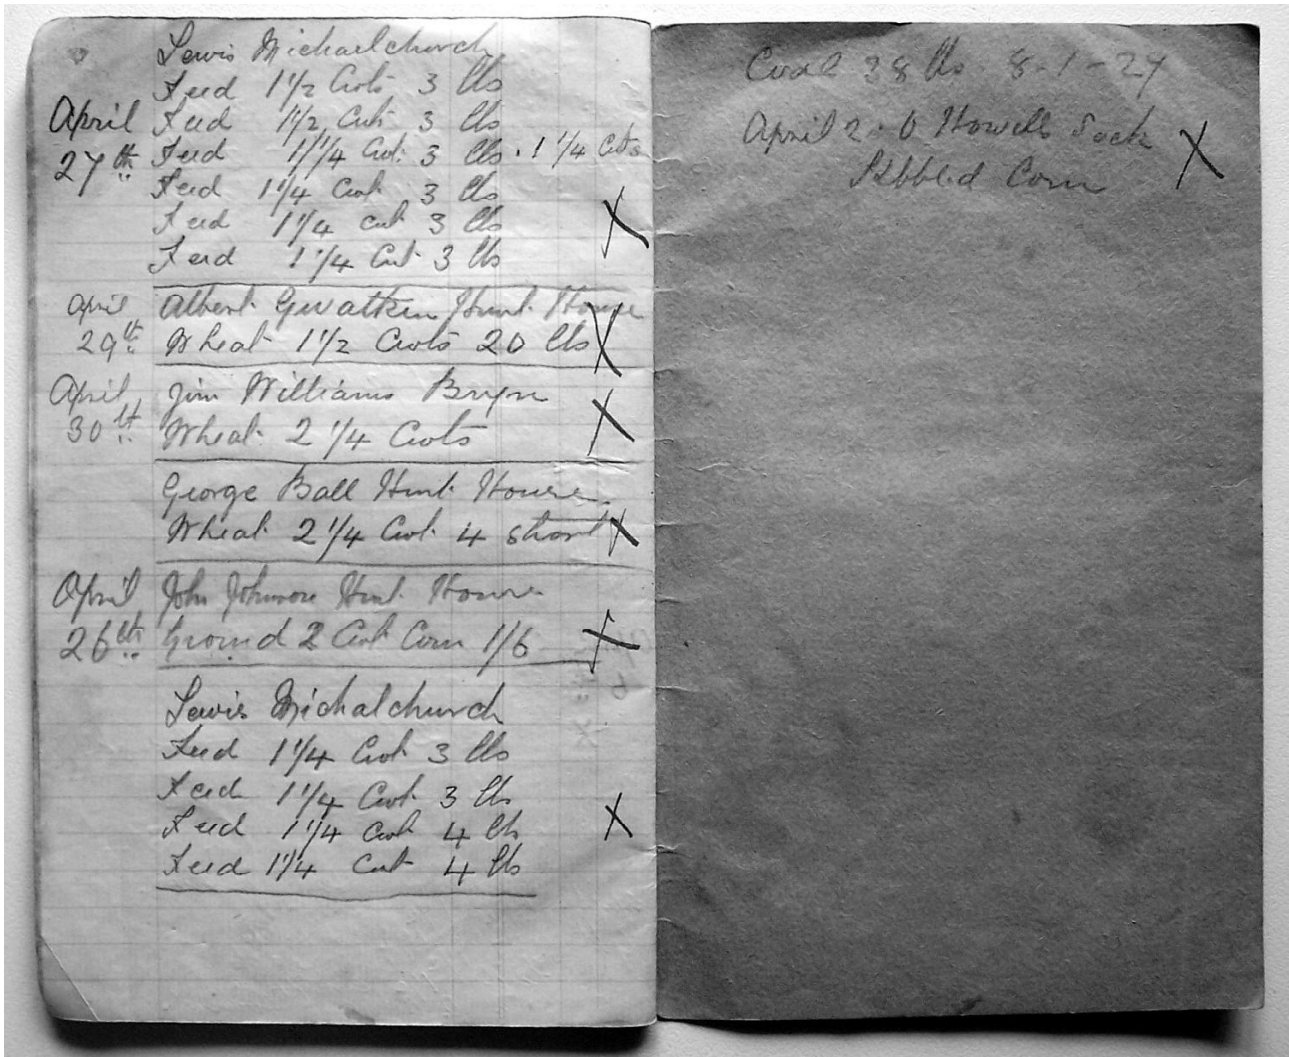 Lewis Michaelchurch
Feed 1 1/2 Cwts 3 lbs
April Feed 1 1/2 Cwt 3 lbs
27th Feed 1 1/4 Cwt 3 lbs . 1 1/4 Cwts
Feed 1 1/4 Cwt 3 lbs
Feed 1 1/4 Cwt 3 lbs X
Feed 1 1/4 Cwt 3 lbs
April Albert Gwatkin Hunt House
29th Wheat 1 1/2 Cwts 20 lbs X
April Jim Williams Bryn
30th Wheat 2 1/4 Cwts X
George Ball Hunt House
Wheat 2 1/4 Cwt 4 short X
April John Johnson Hunt House
26th Ground 2 Cwt Corn 1/6 X
Lewis Michalchurch
Feed 1 1/4 Cwt 3 lbs
Feed 1 1/4 Cwt 3 lbs
Feed 1 1/4 Cwt 4 lbs X
Feed 1 1/4 Cwt 4 lbs
Coal 38 lbs 8-1-27
April 2 Howells Sack X
Kibbled Corn